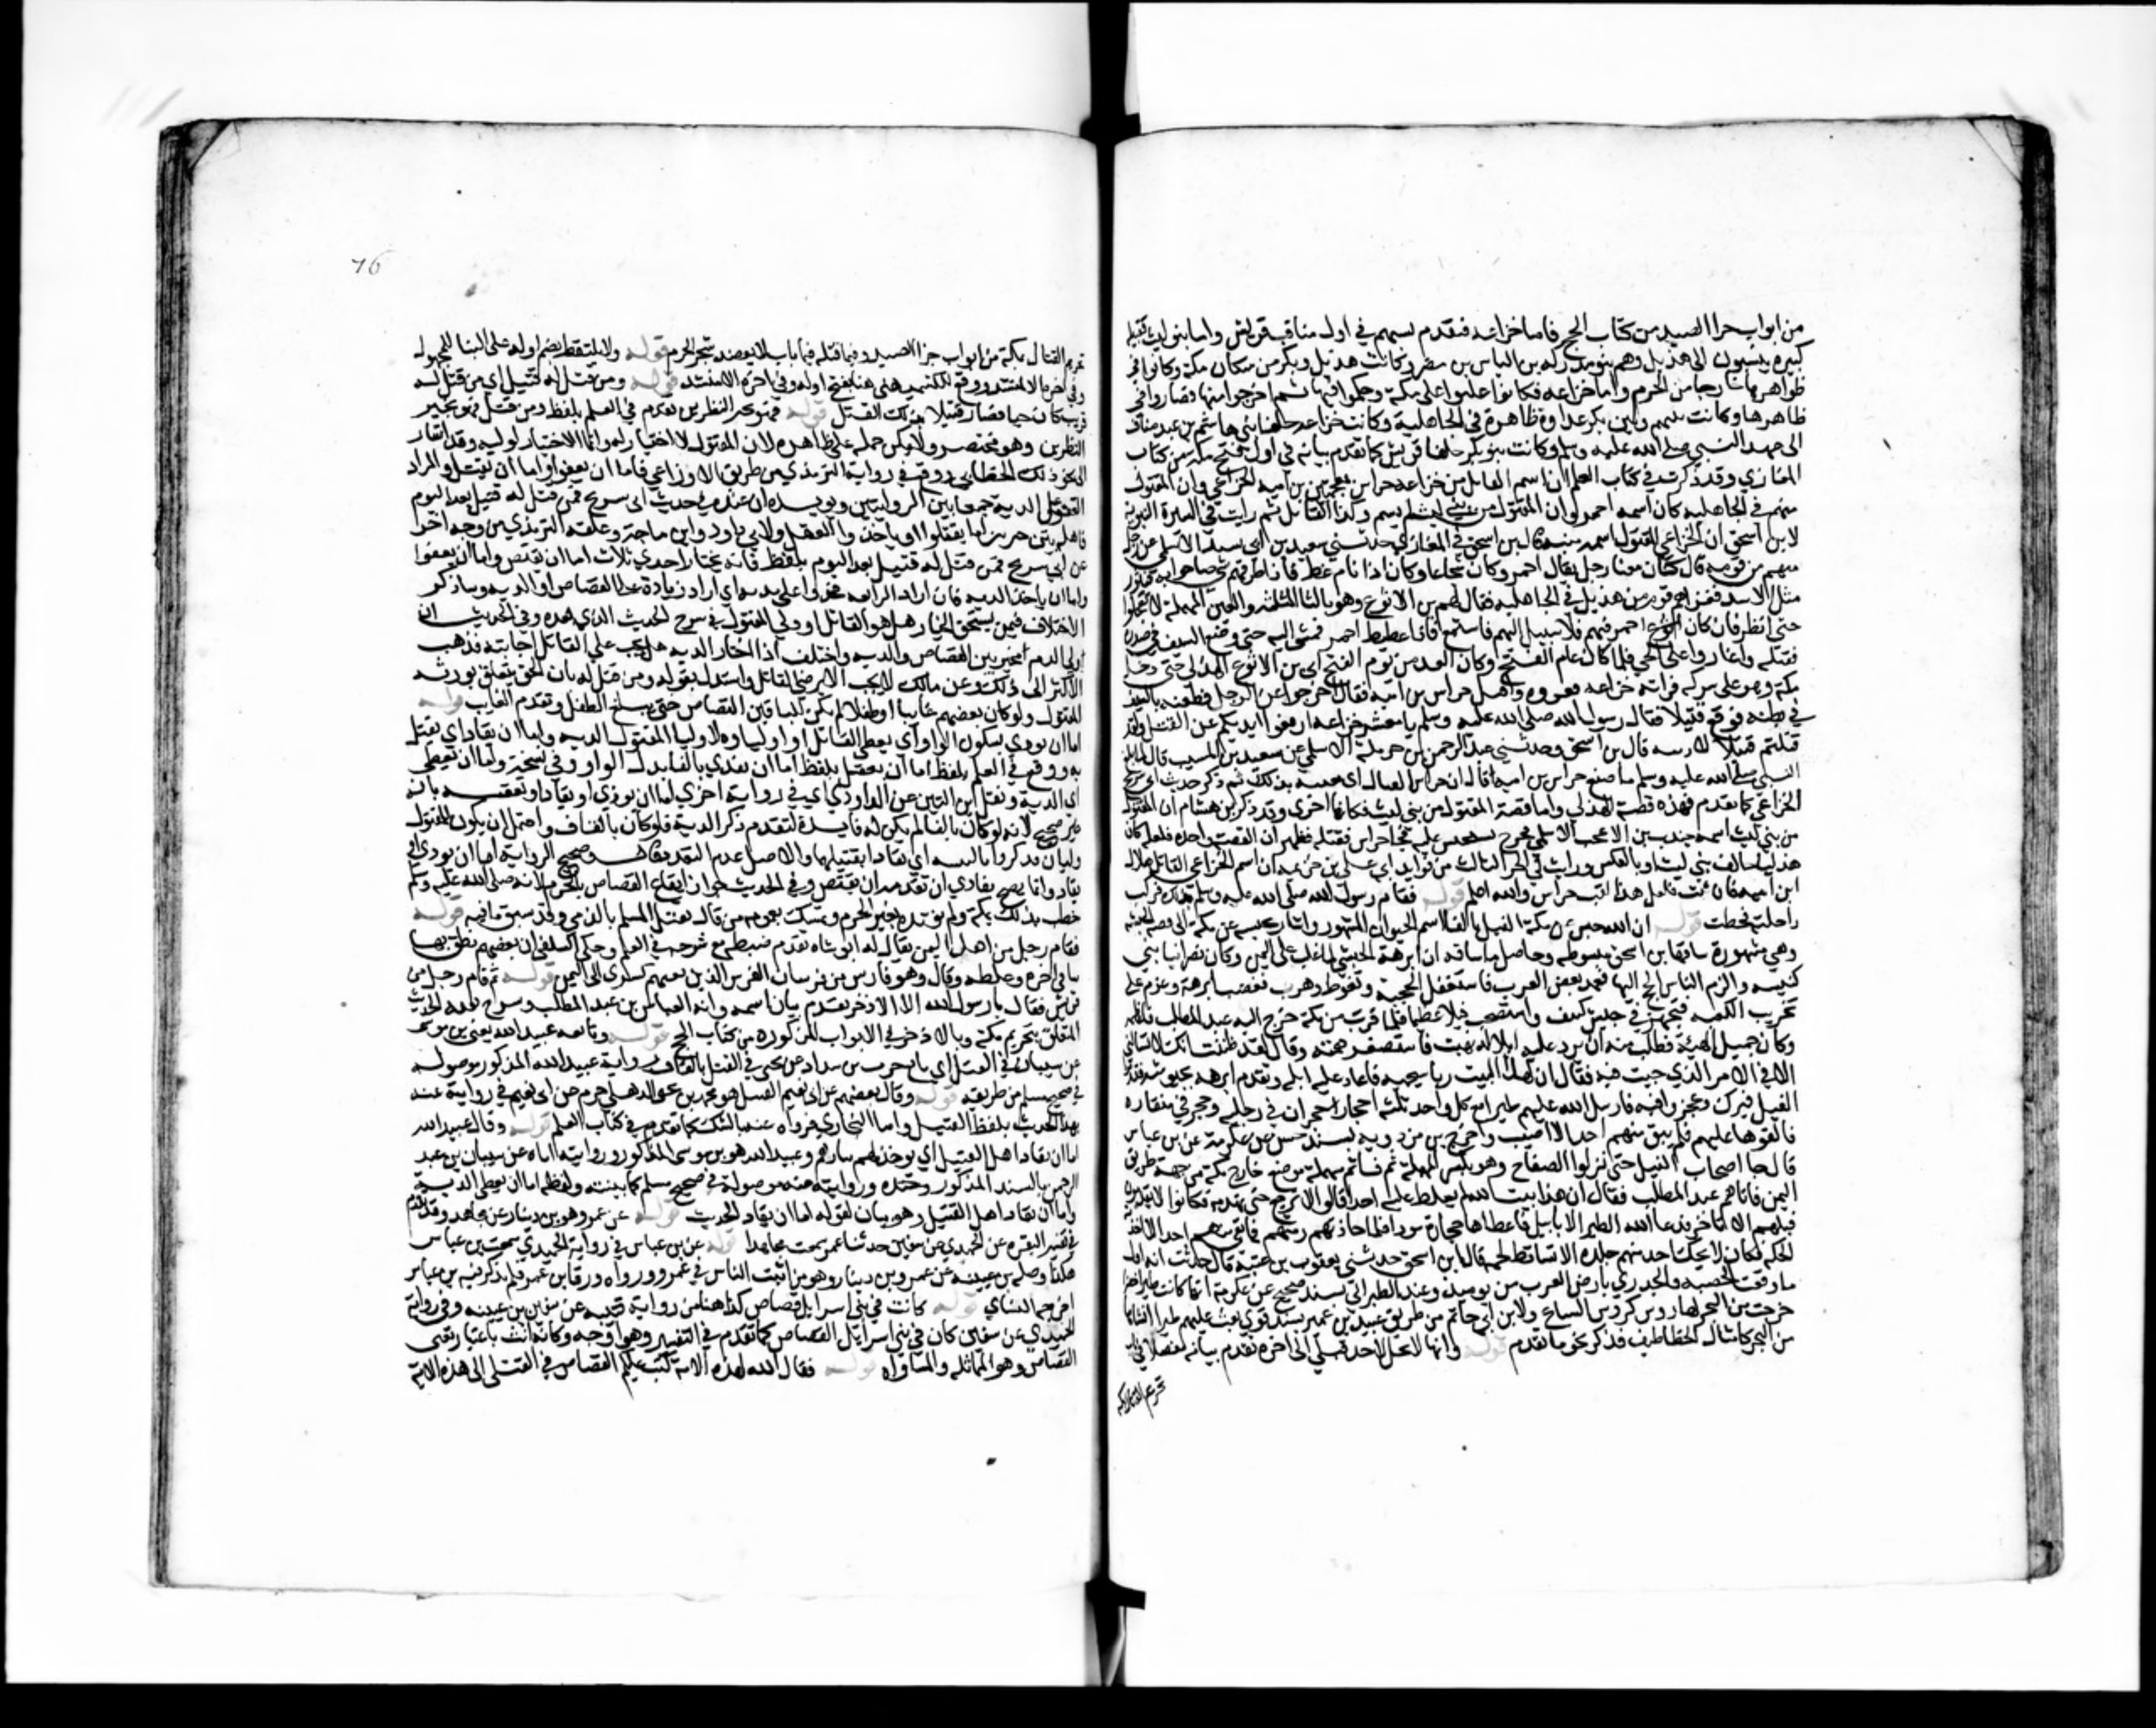 من ابواب جزا الصيد من كتاب الحج فاما خزاعه فتقدم نسبهم في اول مناقب قريش واما بنو ليث فقبيله
كبيره ينسبون الى هذيل وهم بنو مدركه بن الياس بن مضر وكانت هذيل وبكر من سكان مكة وكانوا في
ظواهرها خارجا من الحرم واما خزاعه فكانوا غلبوا على مكة وحكموا فيها ثم اخرجوا منها فصاروا في
ظاهرها وكانت بينهم وبين بكر عداوة ظاهرة في الجاهلية وكانت خزاعه حلفا بني هاشم بن عبد مناف
الى عهد النبي صلى الله عليه وسلم وكانت بنو بكر حلفا قريش كما تقدم بيانه في اول فتح مكة من كتاب
المغازي وقد ذكرت في كتاب العلم ان اسم القاتل من خزاعه خراش بن امية الخزاعي وان المقتول
منهم في الجاهليه كان اسمه احمر وان المقتول من بني ليث لم يسم وكذا القاتل ثم رايت في السيرة النبوية
لابن اسحق ان الخزاعي المقتول اسمه قال بن اسحق في المغازي حدثني سعيد بن ابي سندر الاسلمي عن رجل
منهم من قومه قال كان معنا رجل يقال احمر وكان شجاعا وكان اذا نام غط فاذا طرقهم شي صاحوا به فيثور
مثل الاسد فغزاهم قوم من هذيل في الجاهليه فقال لهم بن الاثوع وهو بالثا المثلثه والعين المهملة لا تعجلوا
حتى انظر فان كان احمر فيهم فلا سبيل اليهم فاستمع فاذا غطيط احمر فمشى اليه حتى وضع السيف في صدره
فقتله واغاروا على الحي فلما كان عام الفتح وكان الغد من يوم الفتح اتى بن الاثوع الهذلي حتى دخل
مكة وهو على شركه فراته خزاعه فعرفوه واقبل خراش بن اميه فقال افرجوا عن الرجل فطعنه بالسيف
في بطنه فوقع قتيلا فقال رسول الله صلى الله عليه وسلم يا معشر خزاعه ارفعوا ايديكم عن القتل ولقد
قتلتم قتيلا لادينه قال بن اسحق وحدثني عبد الرحمن بن حرملة الاسلمي عن سعيد بن المسيب قال لما بلغ
النبي صلى الله عليه وسلم ما صنع خراش بن اميه قال ان خراشا لقتال اى يعيبه بذلك ثم ذكر حديث ابي شريح
الخزاعي كما تقدم فهذه قصة الهذلي واما قصة المقتول من بني ليث فكانها اخرى وقد ذكر بن هشام ان المقتول
من بني ليث اسمه جندب بن الاكوع
هذليا حالف بني ليث او بالعكس ورايت في الجز الثالث من فوايد ابي علي بن خزيمة ان اسم الخزاعي القاتل هلال
ابن اميه فان ثبت فلعل هذا لقب خراش والله اعلم قوله فقام رسول الله صلى الله عليه وسلم فركب
راحلته فخطب قوله ان الله حبس عن مكة الفيل بالفا اسم الحيوان المشهور واشار بحبسه عن مكة الى قصه الحبشه
وهي مشهورة ساقها بن اسحق مبسوطه وحاصل ما ساقه ان ابرهة الحبشي لما غلب على اليمن وكان نصرانيا بنى
كنيسه والزم الناس الحج اليها فعمد بعض العرب فاستغفل الحجبة وتغوط وهرب فغضب ابرهة وعزم على
تخريب الكعبه فتجهز في جيش كثيف واستصحب فيلا عظيما فلما قرب من مكة خرج اليه عبد المطلب فاعظمه
وكان جميل الهيئة فطلب منه ان يرد عليه ابلا له نهبت فاستقصر همته وقال لقد ظننت انك لا تسالني
الا في الامر الذي جيت فيه فقال ان لهذا البيت ربا سيحميه فاعاد عليه ابله وتقدم ابرهه بجيوشه فقدموا
الفيل فبرك وعجزوا فيه فارسل الله عليهم طيرا مع كل واحد ثلثه احجار حجران في رجليه وحجر في منقاره
فالقوها عليهم فلم يبق منهم احد الا اصيب واخرج بن مردويه بسند حسن عن عكرمة عن بن عباس
قال جا اصحاب الفيل حتى نزلوا الصفاح وهو بكسر المهملة ثم فا ثم مهملة موضع خارج مكة من جهة طريق
اليمن فاتاهم عبد المطلب فقال ان هذا بيت الله لم يسلط عليه احدا قالوا لا نرجع حتى نهدمه فكانوا لا يقدمون
فيلهم الا تاخر فدعا الله الطير الابابيل فاعطاها حجارة سودا فلما حاذتهم رمتهم فما بقي منهم احد الا اخذته
الحكه فكان لا يحك احد منهم جلده الا تساقط لحمه قال ابن اسحق حدثني يعقوب بن عتبة قال حدثت ان اول
ما وقعت الحصبه والجدري بارض العرب من يوميذ وعند الطبراني بسند صحيح عن عكرمة انها كانت طيرا خضرا
خرجت من البحر لها روس كروس السباع ولابن ابي حاتم من طريق عبيد بن عمير بسند قوي بعث عليهم طيرا انشاها
من البحر كامثال الخطاطيف فذكر نحو ما تقدم قوله وانها لا تحل لاحد قبلي الى اخره تقدم بيانه مفصلا في باب
تحريم القتال بمكة
76
تحريم القتال بمكة من ابواب جزا الصيد وفيما قبله في باب لا يعضد شجر الحرم قوله ولا يلتقط بضم اوله على البنا للمجهول
وفي اخره الا لمنشد ووقع للكشميهني هنا بفتح اوله وفي اخره الا منشد قوله ومن قتل له قتيل اي من قتل له
قريب كان حيا فصار قتيلا بذلك القتل قوله فهو بخير النظرين تقدم في العلم بلفظ ومن قتل فهو بخير
النظرين وهو مختصر ولا يمكن حمله على ظاهره لان المقتول لا اختيار له وانما الاختيار لوليه وقد اشار
الى نحو ذلك الخطابي ووقع في رواية الترمذي من طريق الاوزاعي فاما ان يعفو واما ان يقتل والمراد
العفو على الدية جمعا بين الروايتين ويويده ان عنده في حديث ابي شريح فمن قتل له قتيل بعد اليوم
فاهله بين خيرتين اما يقتلوا او ياخذوا العقل ولابي داود وابن ماجة وعلقه الترمذي من وجه اخر
عن ابي شريح فمن قتل له قتيل بعد اليوم بلفظ فانه يختار احدى ثلاث اما ان يقتص واما ان يعفو
واما ان ياخذ الديه فان اراد الرابعه فخذوا على يديه اي اراد زيادة على القصاص او الديه وساذكر
الاختلاف فيمن يستحق الخيار هل هو القاتل او ولي المقتول في شرح الحديث الذي بعده وفي الحديث ان
ولي الدم يخير بين القصاص والديه واختلف اذا اختار الديه هل يجب على القاتل اجابته فذهب
الاكثر الى ذلك وعن مالك لا يجب الا برضى القاتل واستدل بقوله ومن قتل له بان الحق يتعلق بورثه
المقتول ولو كان بعضهم غايبا او طفلا لم يكن للباقين القصاص حتى يبلغ الطفل ويقدم الغايب قوله
اما ان يودي بسكون الواو اي يعطي القاتل او اولياوه لاوليا المقتول الديه واما ان يقاد اي يقتل
به ووقع في العلم بلفظ اما ان يعقل بلفظ اما ان يفدي بالفا بدل الواو وفي نسخة واما ان تعطى
اى الدية ونقل ابن التين عن الداودي ان في رواية اخرى اما ان يودي او يقادا وتعقبه بانه
غير صحيح لانه لو كان بالفا لم يكن له فايدة لتقدم ذكر الدية فلو كان بالقاف واحتمل ان يكون للمقتول
وليان فذكرا اي يقادا بقتيلهما والاصل عدم التعدد وصحيح الرواية اما ان يودي او
يقاد وانما يصح يفادي ان تقدمه ان يقتص وفي الحديث جواز ايقاع القصاص بالحرم لانه صلى الله عليه وسلم
خطب بذلك بمكة ولم يقيده بغير الحرم وتمسك بعمومه من قال يقتل المسلم بالذمي وقد سبق ما فيه قوله
فقام رجل من اهل اليمن يقال له ابو شاه تقدم ضبطه مع شرحه في العلم وحكى السلفي ان بعضهم نطق بها
بتا في اخره وغلطه وقال وهو فارس من فرسان الفرس الذين بعثهم كسرى الى اليمن قوله ثم قام رجل من
قريش فقال يا رسول الله الا الاذخر تقدم بيان اسمه وانه العباس بن عبد المطلب وشرح بقية الحديث
المتعلق بتحريم مكة وبالاذخر في الابواب المذكوره من كتاب الحج قوله وتابعه عبيد الله يعني بن موسى
عن شيبان في الفيل اي تابع حرب بن شداد عن يحيى في الفيل بالفا ورواية عبيد الله المذكور موصوله
في صحيح مسلم من طريقه قوله وقال بعضهم عن ابي نعيم القتل هو محمد بن يحيى الذهلي جزم عن ابي نعيم في روايته عنه
بهذا الحديث بلفظ القتيل واما البخاري فرواه عنه بالشك كما تقدم في كتاب العلم قوله وقال عبيد الله
اما ان يقاد اهل القتيل اي يوخذ لهم بثارهم وعبيد الله هو بن موسى المذكور وروايته اياه عن شيبان بن عبد
الرحمن بالسند المذكور وروايته عنه موصولة في صحيح مسلم كما بينته ولفظه اما ان يعطى الدية
واما ان يقاد اهل القتيل وهو بيان لقوله اما ان يقاد الحديث قوله عن عمرو هو بن دينار عن مجاهد وقد تقدم
في تفسير البقره عن الحميدي عن سفيان حدثنا عمرو سمعت مجاهدا قوله عن بن عباس في رواية الحميدي سمعت بن عباس
هكذا وصله بن عيينه عن عمرو بن دينار وهو من اثبت الناس في عمرو ورواه ورقا بن عمر فلم يذكر فيه بن عباس
اخرجه النساي قوله كانت في بني اسرايل قصاص كذا هنا من رواية قتيبه عن سفين بن عيينه وفي رواية
الحميدي عن سفين كان في بني اسرائيل القصاص كما تقدم في التفسير وهو اوجه وكانه انث باعتبار معنى
القصاص وهو المماثله والمساواه قوله فقال الله لهذه الامه كتب عليكم القصاص في القتلى الى هذه الاية